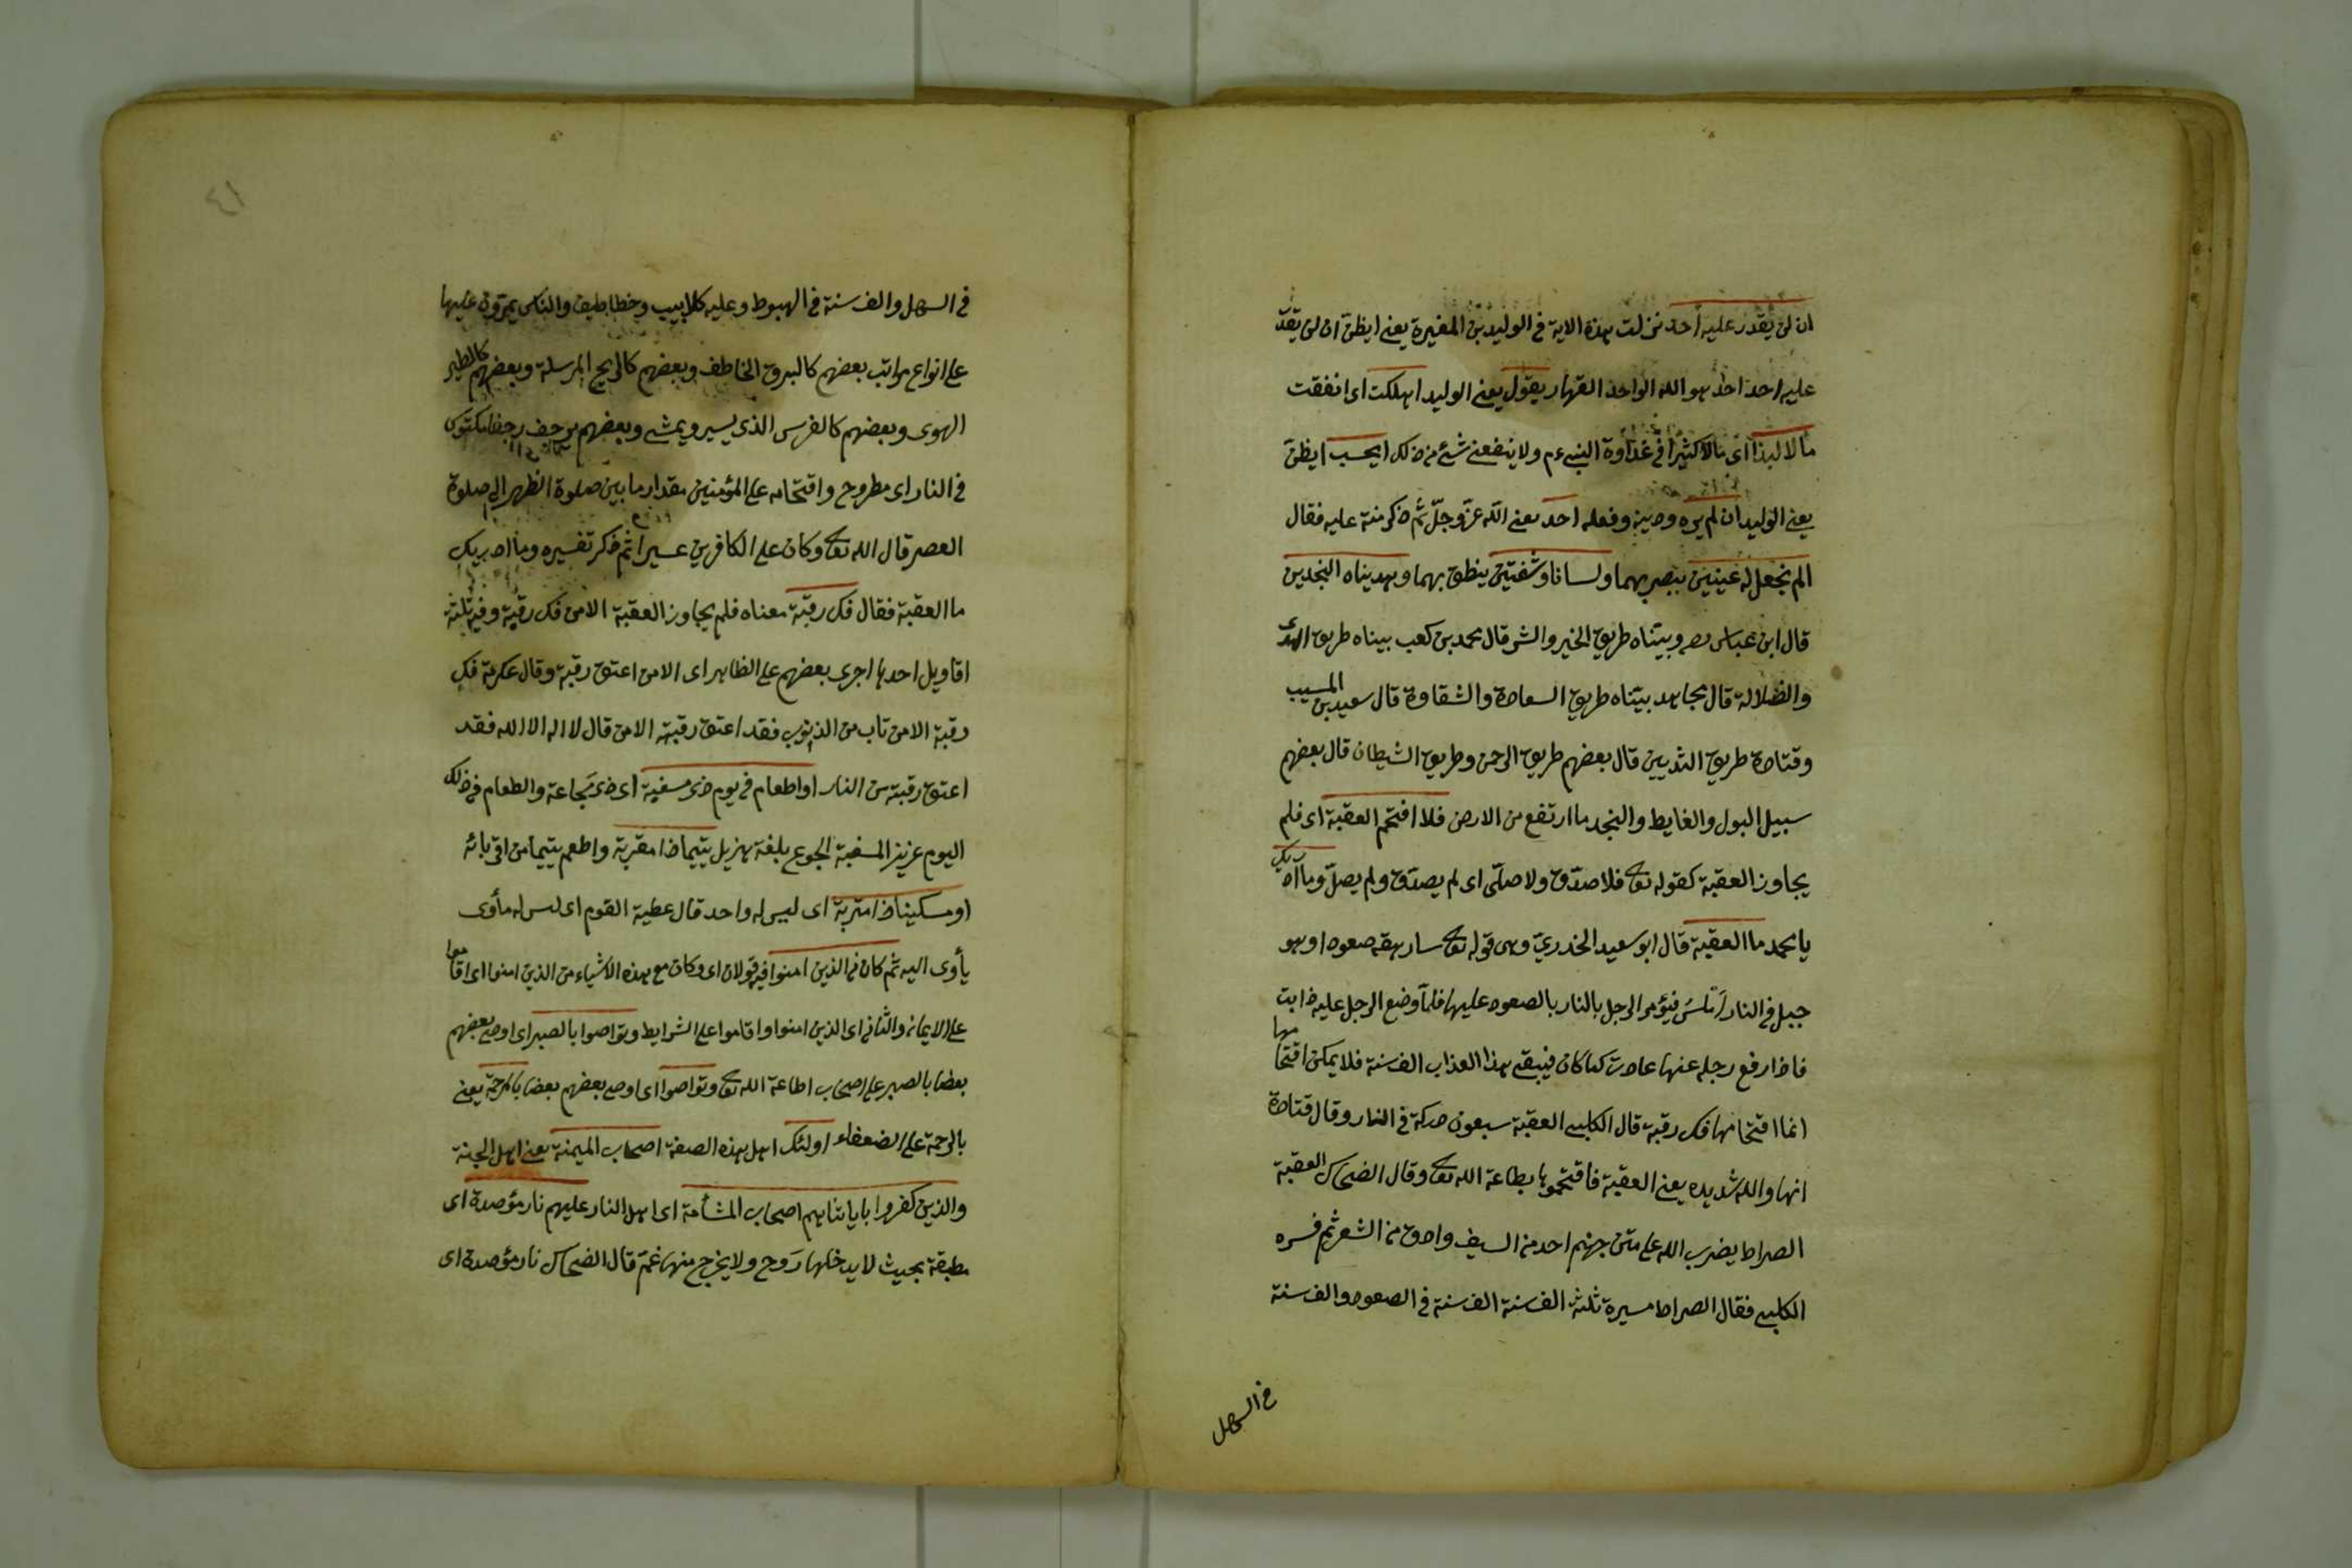 ان لن يقدر عليه احد نزلت هذه الاية في الوليد بن المغيرة يعني ايظن ان لن يقدر
عليه احد احد هو الله الواحد القهار يقول يعني الوليد اهلكت اى انفقت
مالا لبدا اى مالا كثيرا في عداوة النبي عم ولا ينفعني شئ من ذلك ايحسب ايظن
يعني الوليد ان لم يره وصنيعه وفعله احد يعني الله عز وجل ثم ذكر منته عليه فقال
الم نجعل له عينين يبصر بهما ولسانا وشفتين ينطق بهما وهديناه النجدين
قال ابن عباس رضه وبيناه طريق الخير والشر قال محمد بن كعب بيناه طريق الهدى
والضلالة قال مجاهد بيناه طريق السعادة والشقاوة قال سعيد بن المسيب
وقتادة طريق الثديين قال بعضهم طريق الرحمن وطريق الشيطان قال بعضهم
سبيل البول والغايط والنجد ما ارتفع من الارض فلا اقتحم العقبة اى فلم
يجاوز العقبة كقوله تعالى فلا صدّق ولا صلّى اى لم يصدّق ولم يصلّ وما ادريك
يا محمد ما العقبة قال ابو سعيد الخدري وهى قوله تعالى سارهقه صعودا وهو
جبل في النار املس فيؤمر الرجل بالنار بالصعود عليها فلما وضع الرجل عليه ذابت
فاذا رفع رجله عنها عادت كما كان فيبقى هذا العذاب الف سنة فلا يمكن اقتحامها
انما اقتحامها فك رقبة قال الكلبي العقبة سبعون دركة في النار وقال قتادة
انها والله شديده يعني العقبة فاقتحموها بطاعة الله تعالى وقال الضحاك العقبة
الصراط يضرب الله على متن جهنم احد من السيف وادق من الشعر ثم فسره
الكلبي فقال الصراط مسيرة ثلثة الف سنة الف سنة في الصعود والف سنة
في السهل
٤١
في السهل والف سنة في الهبوط وعليه كلاليب وخطاطيف والناس يمرون عليها
على انواع مراتب بعضهم كالبرق الخاطف وبعضهم كالريح المرسلة وبعضهم كالطير
الهوى وبعضهم كالفرس الذي يسير ويمشي وبعضهم يرجف رجفا مكتوس
في النار اى مطروح واقتحامه على المؤمنين مقدار ما بين صلوة الظهر الى صلوة
العصر قال الله تعالى وكان على الكافرين عسيرا ثم ذكر تفسيره وما ادريك
ما العقبة فقال فك رقبة معناه فلم يجاوز العقبة الا من فك رقبة وفيه ثلثة
اقاويل احدها اجرى بعضهم على الظاهر اى الا من اعتق رقبة وقال عكرمة فك
رقبة الا من تاب من الذنوب فقد اعتق رقبته الا من قال لا اله الا الله فقد
اعتق رقبته من النار او اطعام في يوم ذى مسغبة اى ذى مجاعة والطعام في ذلك
اليوم عزيز المسغبة الجوع بلغة هزيل يتيما ذا مقربة واطعم يتيما من اقربائه
او مسكينا ذا متربة اى ليس له واحد قال عطية القوم اى ليس له مأوى
يأوى اليه ثم كان من الذين امنوا فيه قولان اى وكان مع هذه الاشياء من الذين امنوا اى اقاموا
على الايمان والثاني اى الذين امنوا واقاموا على الشرايط وتواصوا بالصبر اى اوصى بعضهم
بعضا بالصبر على اصحاب اطاعة الله تعالى وتواصوا اى اوصى بعضهم بعضا بالمرحمة يعني
بالرحمة على الضعفاء اولئك اهل هذه الصفة اصحاب الميمنة يعني اهل الجنة
والذين كفروا باياتنا هم اصحاب المشأمة اى اهل النار عليهم نار مؤصدة اى
مطبقة بحيث لا يدخلها روح ولا يخرج منها غم قال الضحاك نار مؤصدة اى